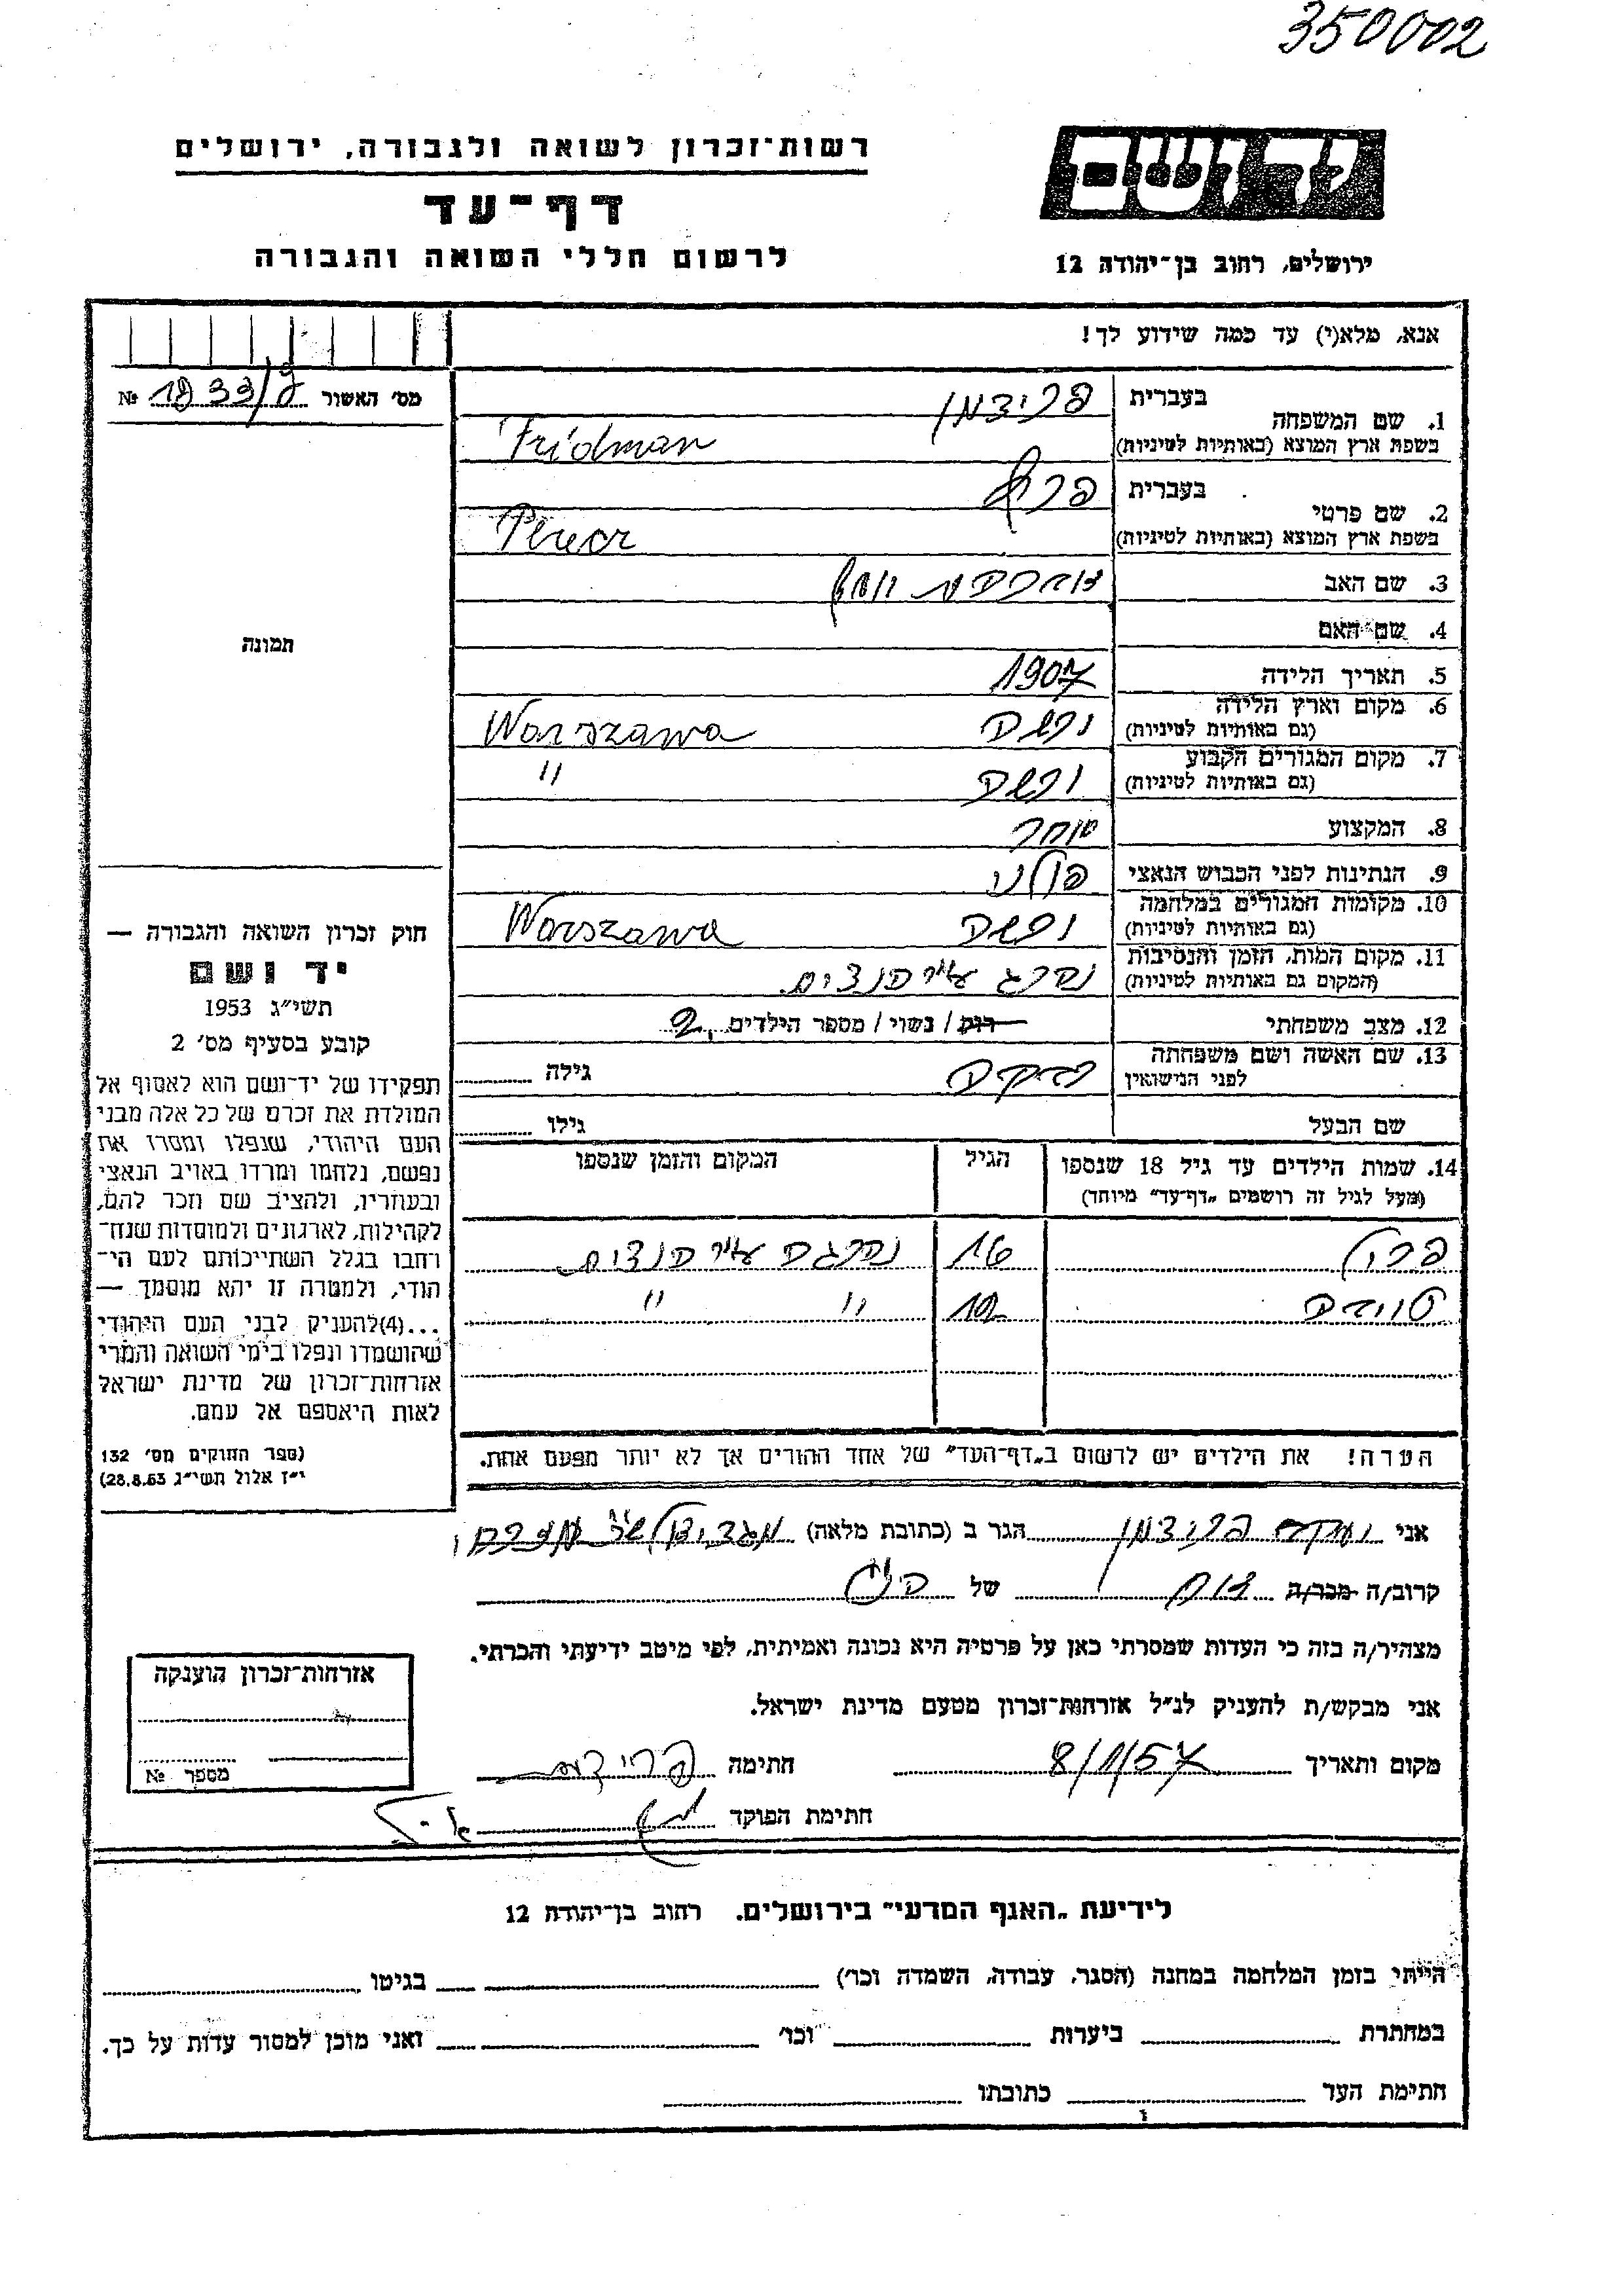 350002
רשות־זכרון לשואה ולגבורה, ירושלים
דף־עד
לרשום חללי השואה והגבורה
יד ושם
ירושלים, רחוב בן־יהודה 12
אנא, מלא(י) עד כמה שידוע לך!
מס׳ האשור
№
1. שם המשפחה
בעברית
פרידמן
בשפת ארץ המוצא (באותיות לטיניות)
Fridman
2. שם פרטי
בעברית
בשפת ארץ המוצא (באותיות לטיניות)
3. שם האב
4. שם האם
5. תאריך הלידה
1907
6. מקום וארץ הלידה
(גם באותיות לטיניות)
ורשה
Warszawa
7. מקום המגורים הקבוע
(גם באותיות לטיניות)
ורשה
"
8. המקצוע
סוחר
9. הנתינות לפני הכבוש הנאצי
פולני
10. מקומות המגורים במלחמה
(גם באותיות לטיניות)
ורשה
Warszawa
11. מקום המות, הזמן והנסיבות
(המקום גם באותיות לטיניות)
נהרג ע״י הנצים.
12. מצב משפחתי
רוק / נשוי / מספר הילדים 2
13. שם האשה ושם משפחתה
לפני הנישואין
רבקה
גילה
שם הבעל
גילו
14. שמות הילדים עד גיל 18 שנספו
(מעל לגיל זה רושמים „דף־עד״ מיוחד)
הגיל
המקום והזמן שנספו
16
נהרגה ע״י הנצים
" "
הערה! את הילדים יש לרשום ב„דף־העד״ של אחד ההורים אך לא יותר מפעם אחת.
תמונה
חוק זכרון השואה והגבורה —
יד ושם
תשי״ג 1953
קובע בסעיף מס׳ 2
תפקידו של יד־ושם הוא לאסוף אל
המולדת את זכרם של כל אלה מבני
העם היהודי, שנפלו ומסרו את
נפשם, נלחמו ומרדו באויב הנאצי
ובעוזריו, ולהציב שם וזכר להם,
לקהילות, לארגונים ולמוסדות שנח־
רחבו בגלל השתייכותם לעם הי־
הודי, ולמטרה זו יהא מוסמך —
...(4)להעניק לבני העם היהודי
שהושמדו ונפלו בימי השואה והמרי
אזרחות־זכרון של מדינת ישראל
לאות היאספם אל עמם.
(ספר החוקים מס׳ 132
י״ז אלול תשי״ג 28.8.53)
אני פרידמן הגר ב (כתובת מלאה)
קרוב/ה מכר/ה של
מצהיר/ה בזה כי העדות שמסרתי כאן על פרטיה היא נכונה ואמיתית, לפי מיטב ידיעתי והכרתי.
אני מבקש/ת להעניק לנ״ל אזרחות־זכרון מטעם מדינת ישראל.
מקום ותאריך 8/1/57 חתימה
חתימת הפוקד
אזרחות־זכרון הוענקה
מספר №
לידיעת „האגף המדעי״ בירושלים. רחוב בן־יהודה 12
הייתי בזמן המלחמה במחנה (הסגר, עבודה, השמדה וכר׳) בגיטו
במחתרת ביערות וכר׳ ואני מוכן למסור עדות על כך.
חתימת העד כתובתו